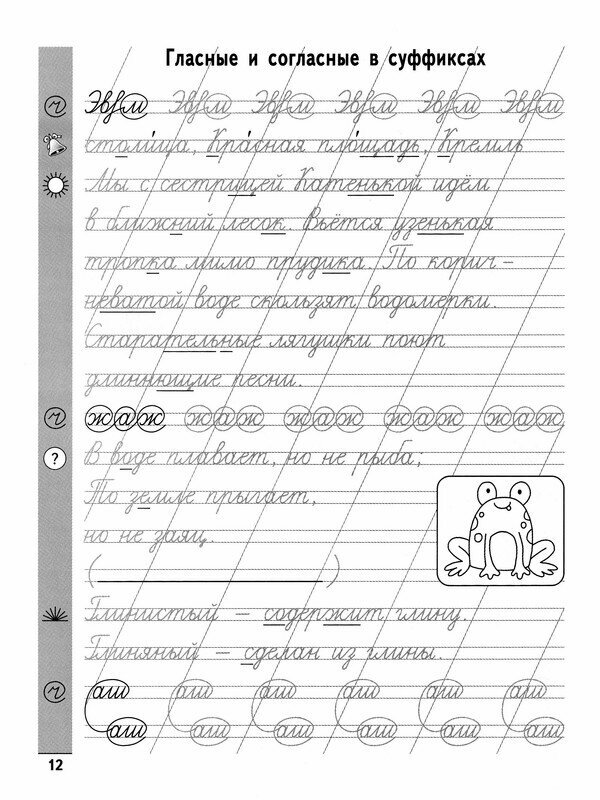 Гласные и согласные в суффиксах
Эвгм Эвгм Эвгм Эвгм Эвгм Эвгм
столи́ца, Кра́сная пло́щадь, Кремль
Мы с сестрицей Катенькой идём
в ближний лесок. Вьётся узенькая
тропка мимо прудика. По корич-
неватой воде скользят водомерки.
Старательные лягушки поют
длиннющие песни.
жаж жаж жаж жаж жаж
?
В воде плавает, но не рыба;
По земле прыгает,
но не заяц.
( )
Глинистый – содержит глину.
Глиняный – сделан из глины.
аш аш аш аш аш аш
аш аш аш аш аш аш
12